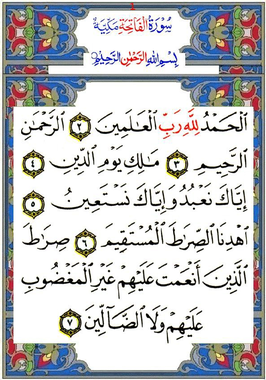 1
سُورَةُ ٱلْفَاتِحَةِ مَكِّيَّةٌ
بِسْمِ ٱللَّهِ ٱلرَّحْمَٰنِ ٱلرَّحِيمِ
ٱلْحَمْدُ لِلَّهِ رَبِّ ٱلْعَٰلَمِينَ ٢ ٱلرَّحْمَٰنِ
ٱلرَّحِيمِ ٣ مَٰلِكِ يَوْمِ ٱلدِّينِ ٤
إِيَّاكَ نَعْبُدُ وَإِيَّاكَ نَسْتَعِينُ ٥
ٱهْدِنَا ٱلصِّرَٰطَ ٱلْمُسْتَقِيمَ ٦ صِرَٰطَ
ٱلَّذِينَ أَنْعَمْتَ عَلَيْهِمْ غَيْرِ ٱلْمَغْضُوبِ
عَلَيْهِمْ وَلَا ٱلضَّآلِّينَ ٧